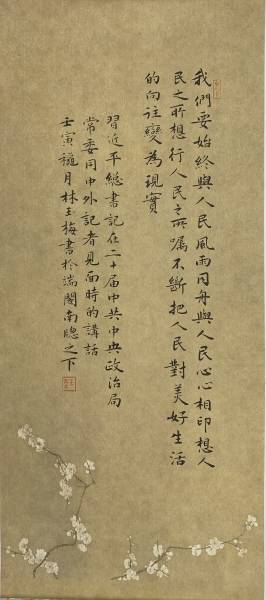 我們要始終與人民風雨同舟與人民心心相印想人
民之所想行人民之所囑不斷把人民對美好生活
的向往變為現實
習近平總書記在二十届中共中央政治局
常委同中外記者見面時的講話
壬寅穐月林玉梅書於端閣南牕之下